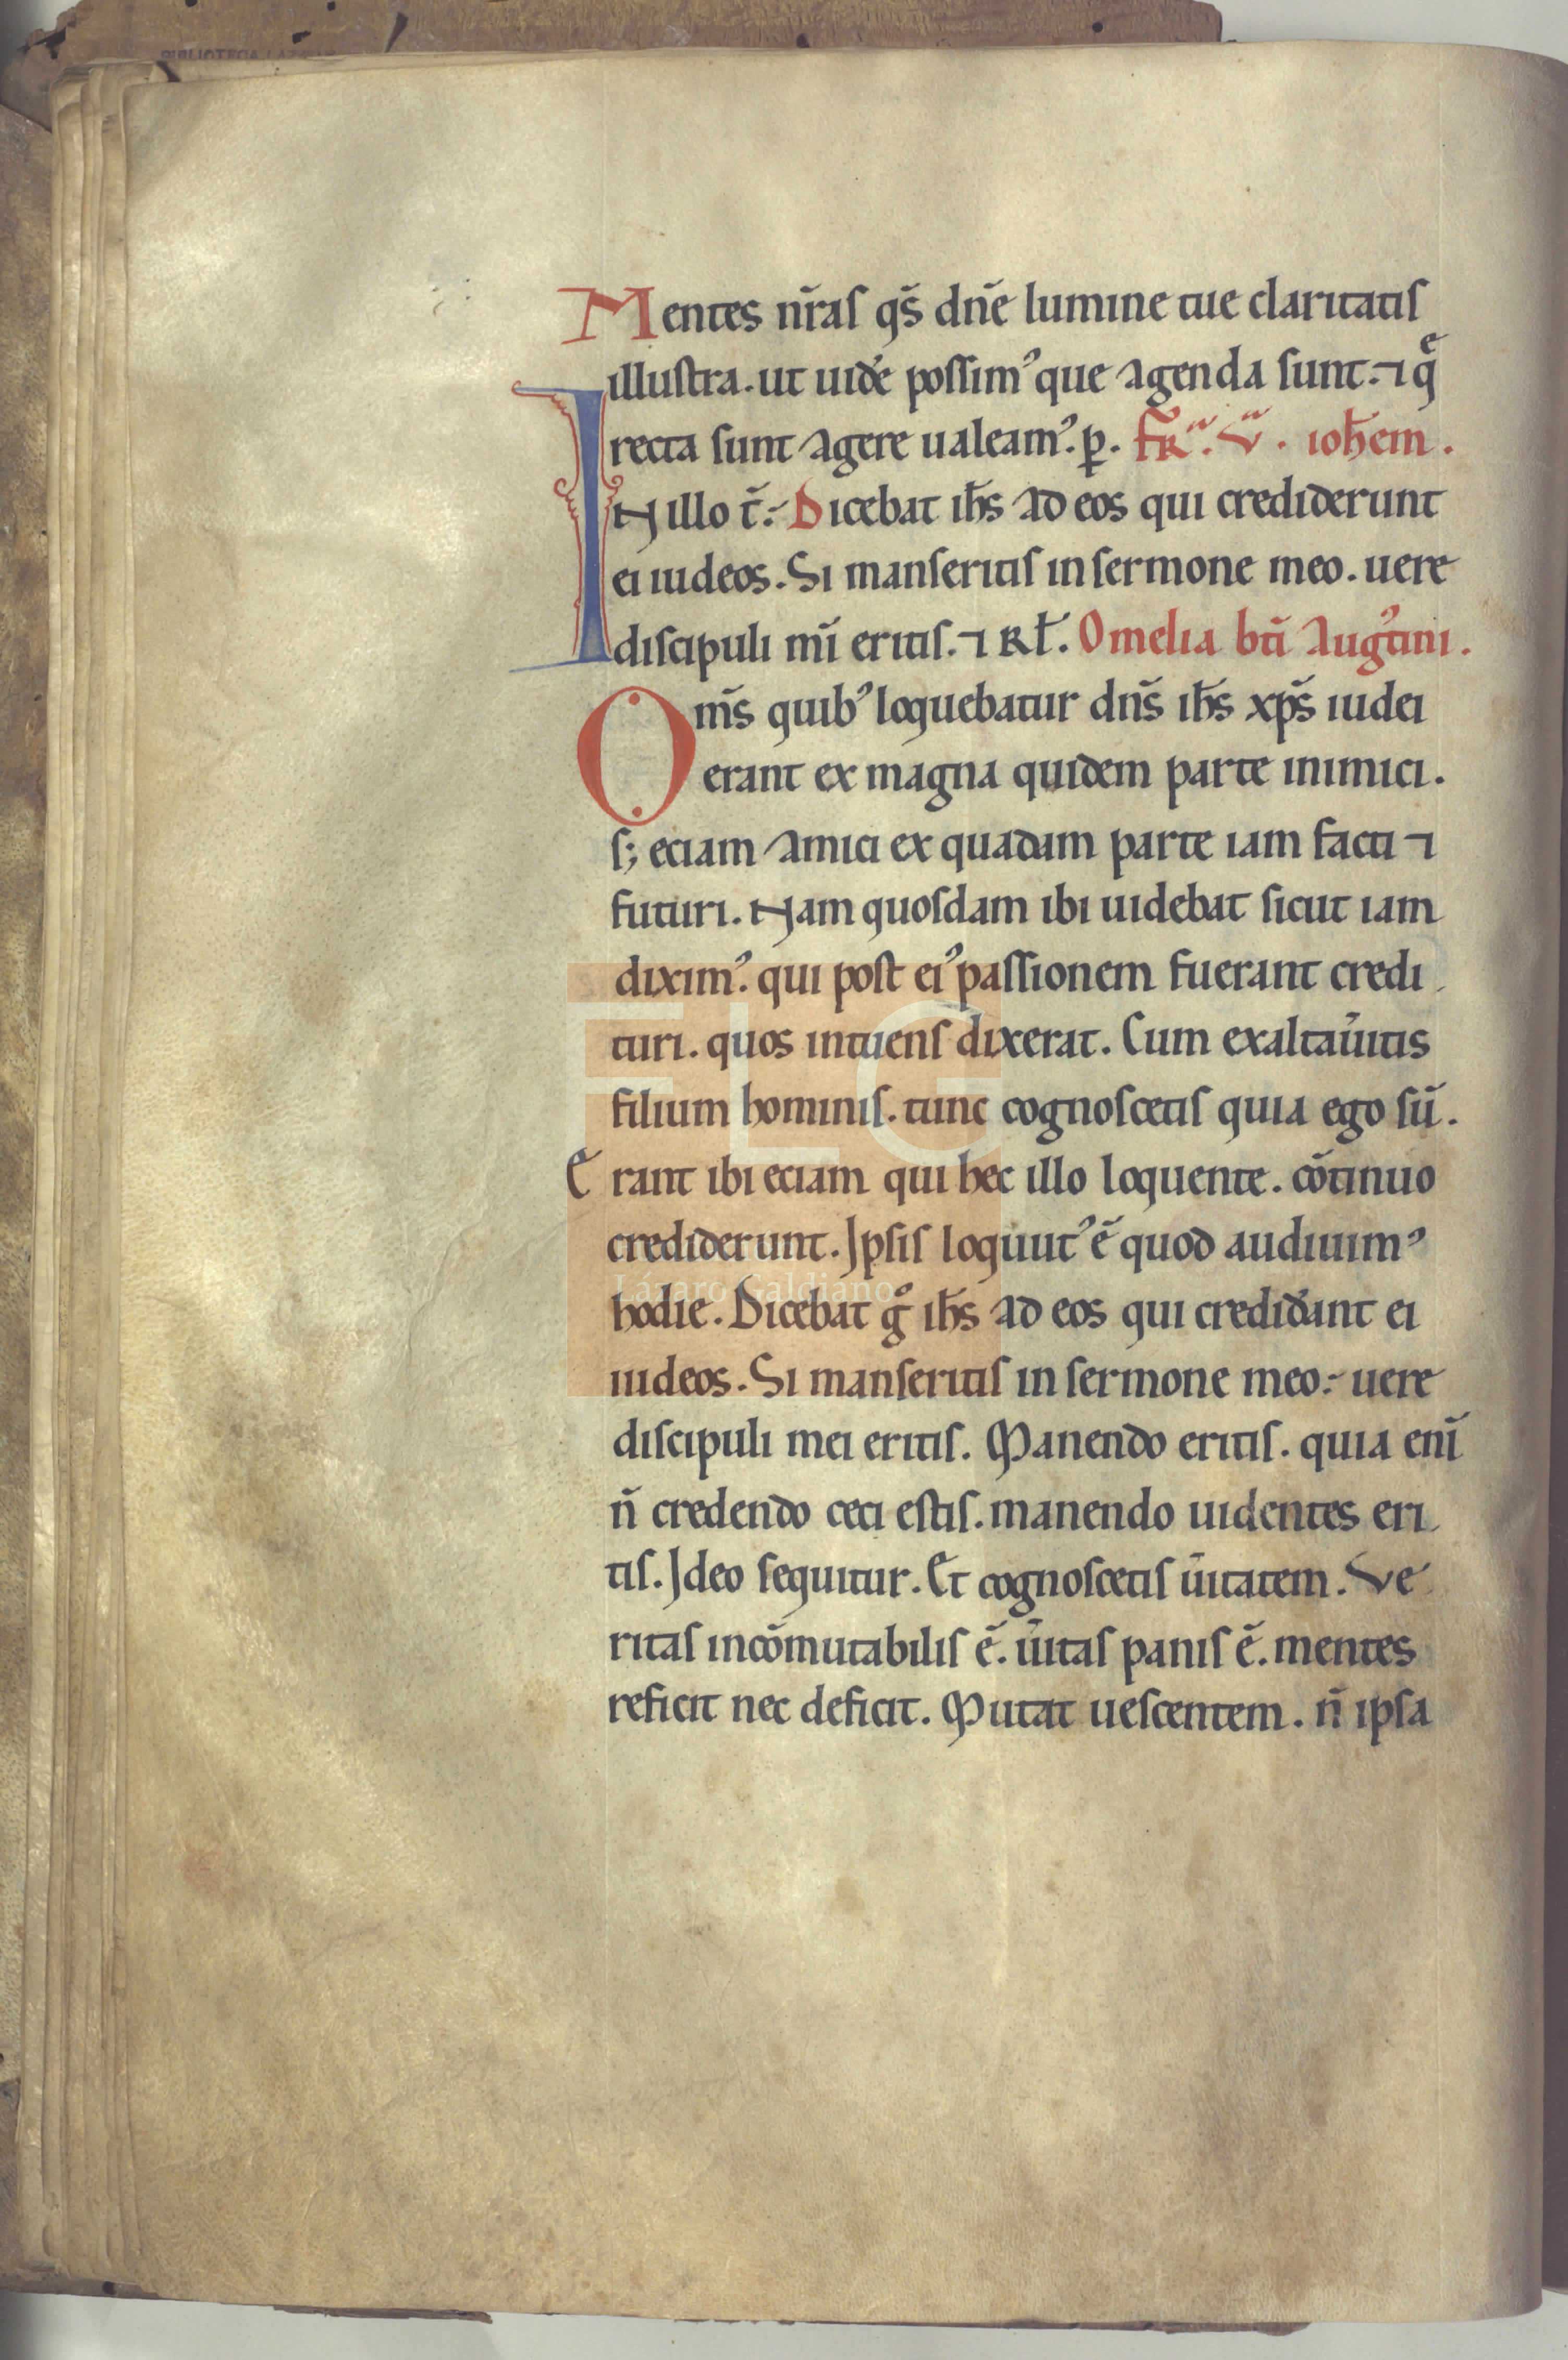 Mentes nr̃as qs̃ dn̄e lumine tue claritatis
illustra. ut uid'e possim⁹ que agenda sunt. ⁊ qͤ
recta sunt agere ualeam⁹. p̲. iohẽm.
IN illo t̃. Dicebat ih̃s ad eos qui crediderunt
ei iudeos. Si manseritis in sermone meo. uere
discipuli mī eritis. ⁊ Rł. Omelia bt̄i Aug⁹tini.
Om̄s quib⁹ loquebatur dn̄s ih̃s xp̄s iudei
erant ex magna quidem parte inimici.
s; eciam amici ex quadam parte iam facti ⁊
futuri. Nam quosdam ibi uidebat sicut iam
dixim⁹. qui post ei⁹ passionem fuerant credi
turi. quos intuens dixerat. Cum exaltau̾itis
filium hominis. tunc cognoscetis quia ego sū.
Erant ibi eciam qui hec illo loquente. cōtinuo
crediderunt. Ipsis loquut⁹ ē quod audiuim⁹
hodie. Dicebat gͦ ih̃s ad eos qui credid'ant ei
iudeos. Si manseritis in sermone meo. uere
discipuli mei eritis. Manendo eritis. quia enī
ñ credendo ceci estis. manendo uidentes eri
tis. Ideo sequitur. Et cognoscetis u̾itatem. Ve
ritas incōmutabilis ē. u̾itas panis ē. mentes
reficit nec deficit. Mutat uescentem. ñ ipsa
FLG
Lázaro Galdiano